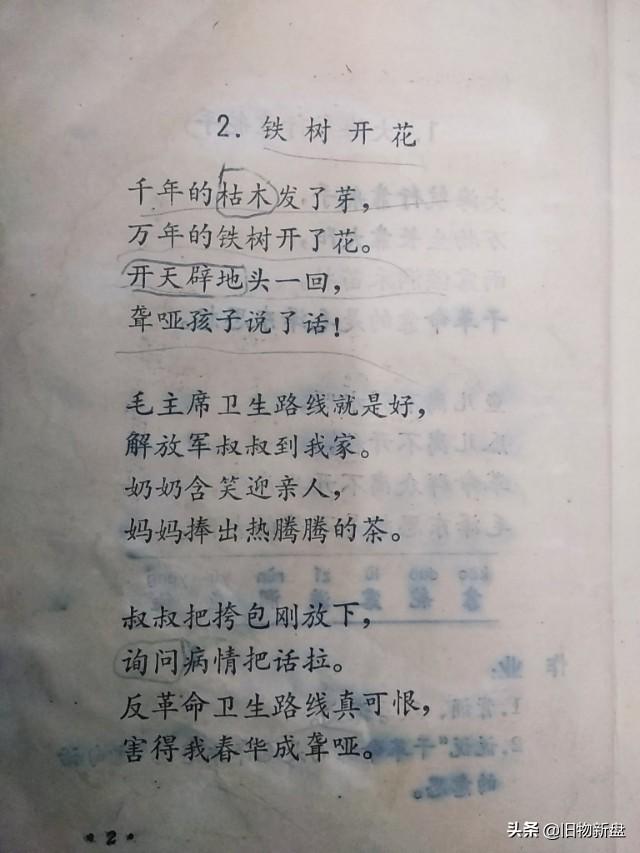 2. 铁树开花
千年的枯木发了芽，
万年的铁树开了花。
开天辟地头一回，
聋哑孩子说了话！
毛主席卫生路线就是好，
解放军叔叔到我家。
奶奶含笑迎亲人，
妈妈捧出热腾腾的茶。
叔叔把挎包刚放下，
询问病情把话拉。
反革命卫生路线真可恨，
害得我春华成聋哑。
·2·
头条 @旧物新盘